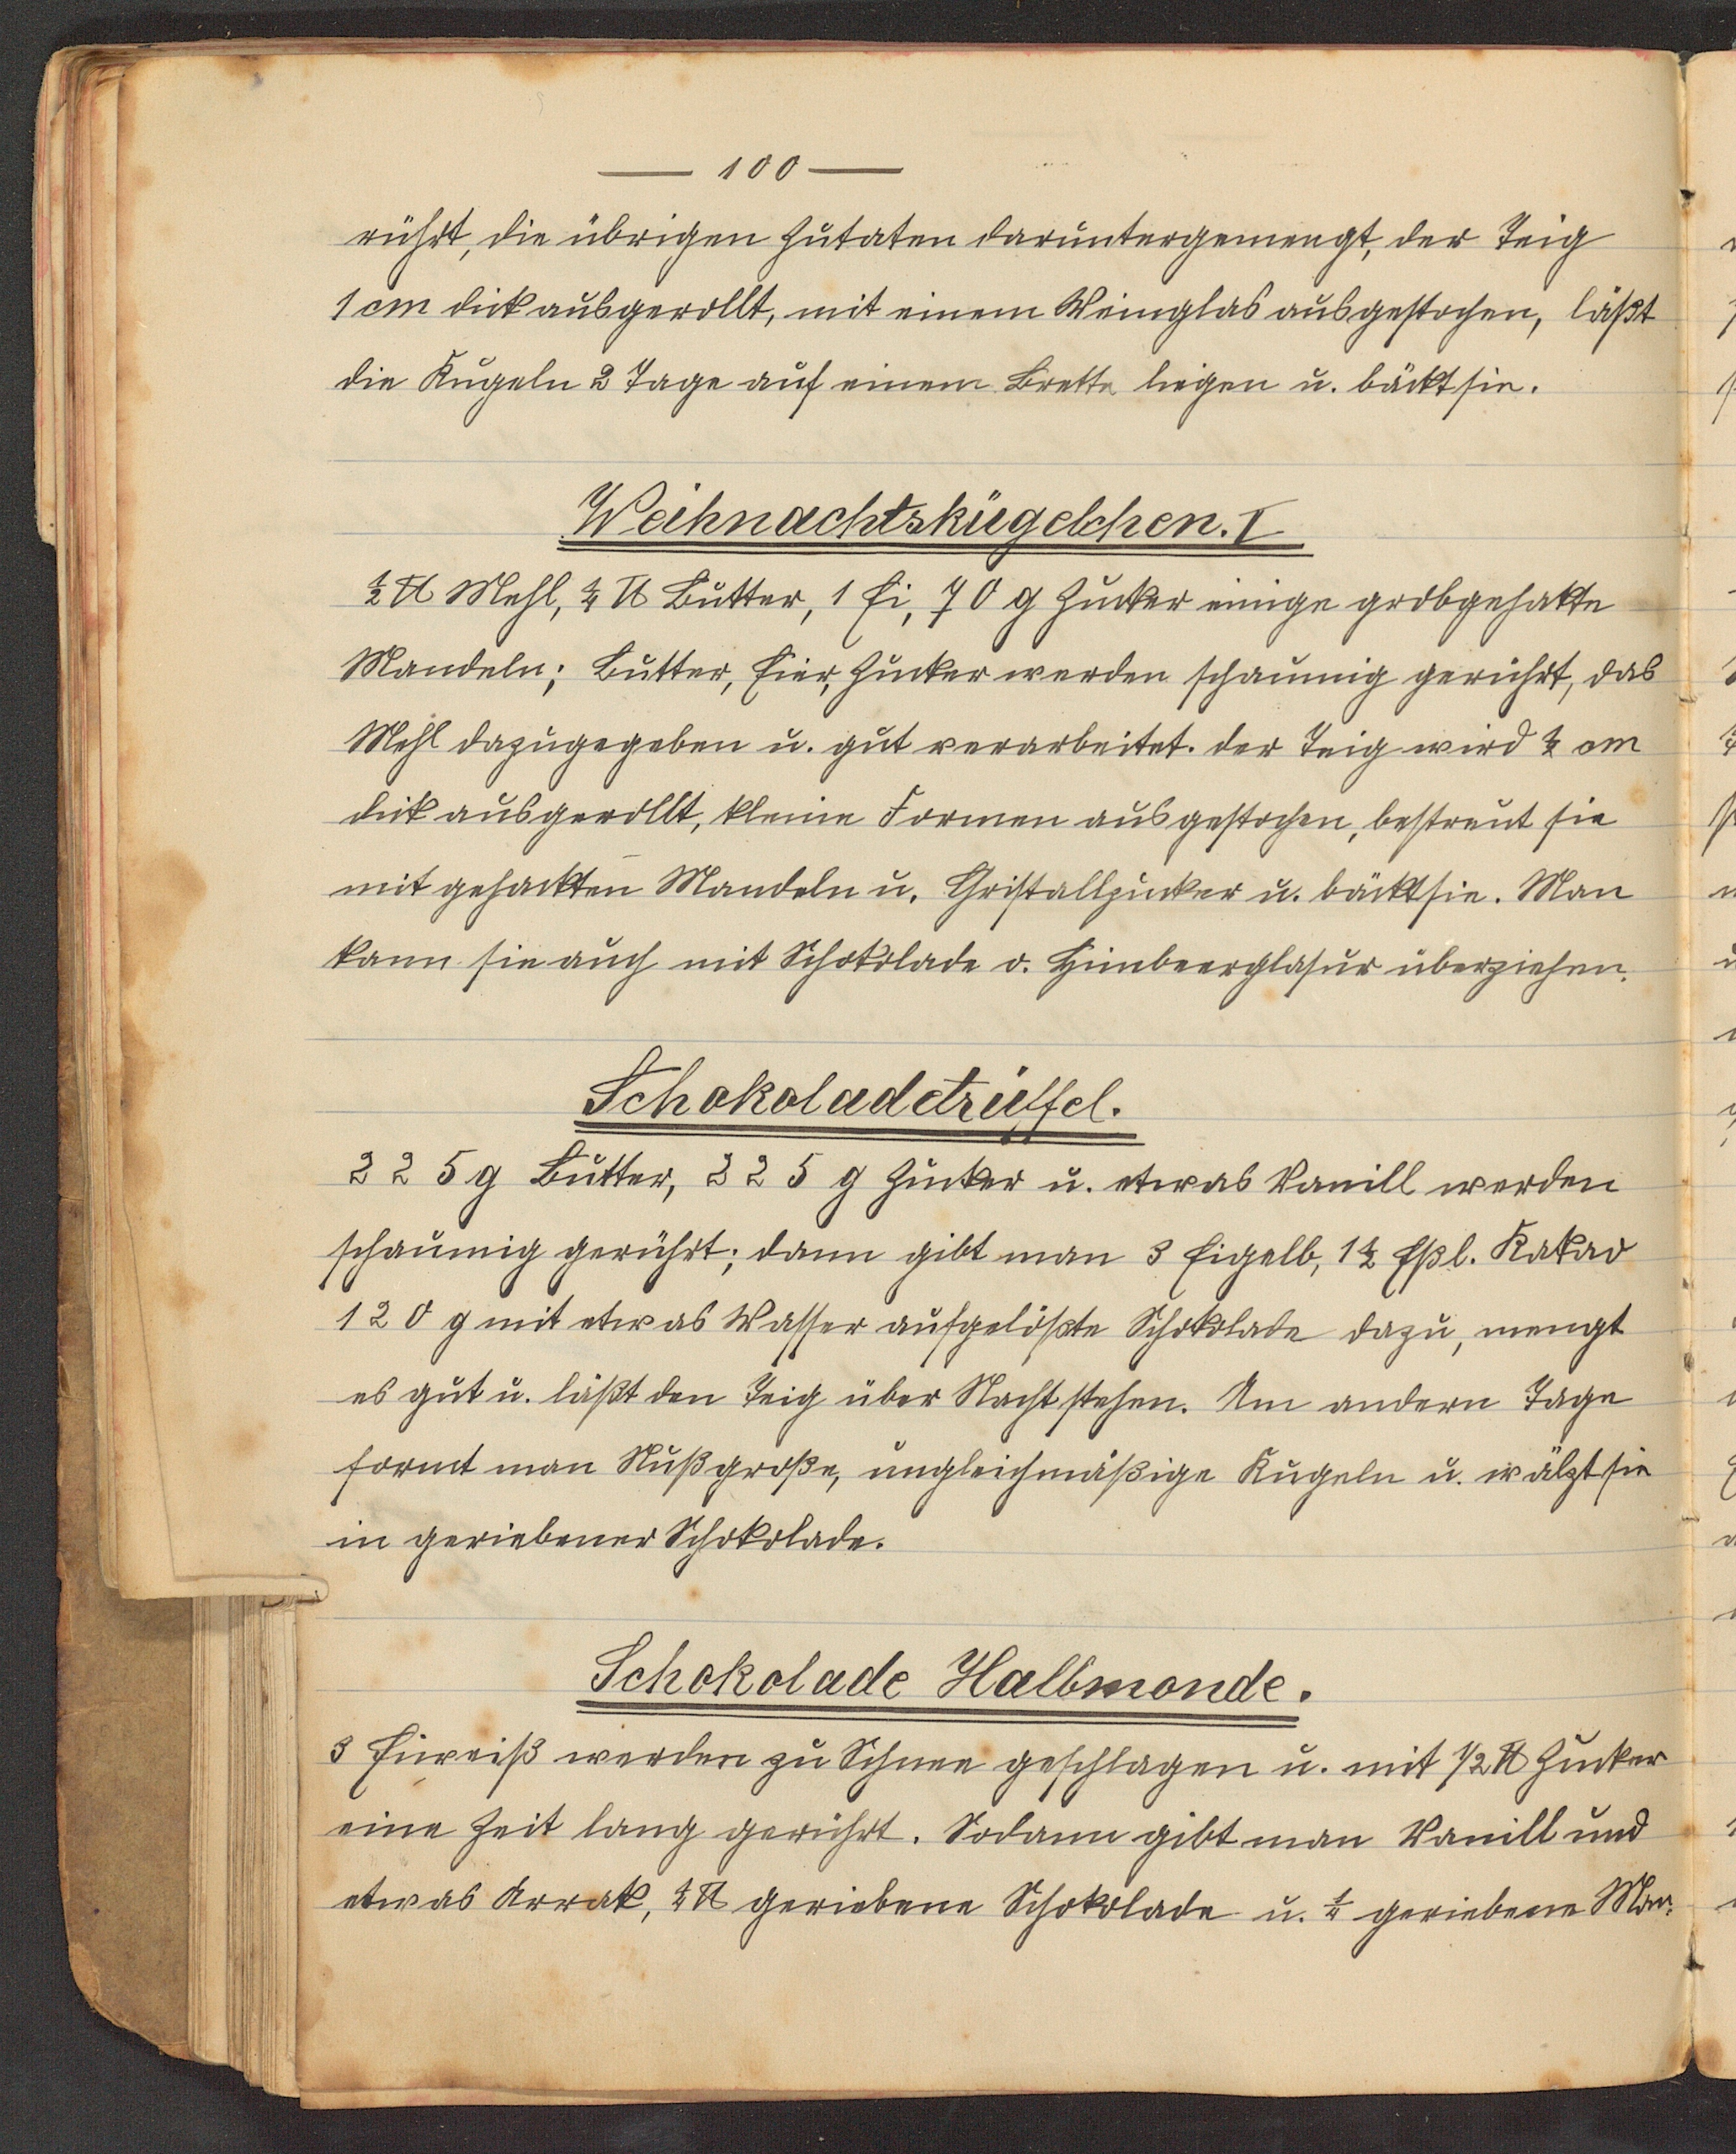 — 100 —
rührt, die übrigen Zutaten daruntergemengt, der Teig
1 cm dick ausgerollt, mit einem Weinglas ausgestochen, läßt
die Kugeln 2 Tage auf einem Brette liegen u. bäckt sie.
Weihnachtskügelchen. I
½ ℔ Mehl, ¼ ℔ Butter, 1 Ei, 70 g Zucker einige grobgehakte
Mandeln; Butter, Eier, Zucker werden schaumig gerührt, das
Mehl dazugegeben u. gut verarbeitet. der Teig wird ½ cm
dick ausgerollt, kleine Formen ausgestochen, bestreut sie
mit gehackten Mandeln u. Christallzucker u. bäckt sie. Man
kann sie auch mit Schokolade o. Himbeerglasur überziehen.
Schokoladetrüffel.
225 g Butter, 225 g Zucker u. etwas Vanill werden
schaumig gerührt; dann gibt man 3 Eigelb, 1½ Eßl. Kakao
120 g mit etwas Wasser aufgelößte Schokolade dazu, mengt
es gut u. läßt den Teig über Nacht stehen. Am andern Tage
formt man Nußgroße, ungleichmäßige Kugeln u. wälzt sie
in geriebener Schokolade.
Schokolade Halbmonde.
3 Eiweiß werden zu Schnee geschlagen u. mit 1/2 ℔ Zucker
eine Zeit lang gerührt. Sodann gibt man Vanill und
etwas Arrak, ¼ ℔ geriebene Schokolade u. ¼ geriebene Man-